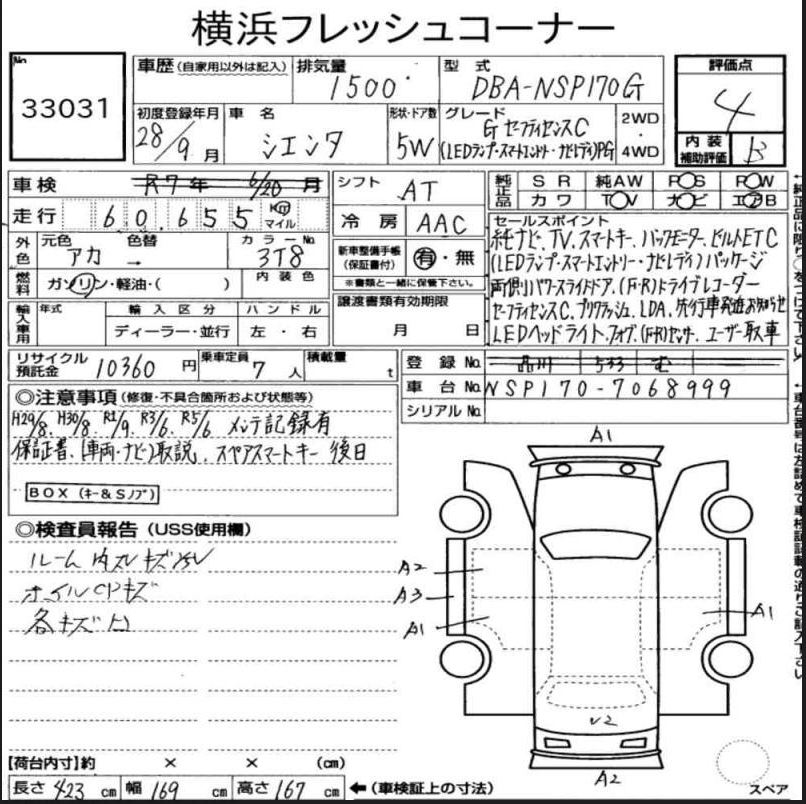 横浜フレッシュコーナー
No
33031
車歴 (自家用以外は記入)
排気量
1500
型式
DBA-NSP170G
評価点
4
初度登録年月
28/9月
車名
シエンタ
形状・ドア数
5W
グレード
G セーフティセンスC
(LEDランプ・スマートエントリー・ナビレディ)PG
2WD
・
4WD
内装
補助評価
B
車検
R7年 6/20月
シフト
AT
純正品
SR
純AW
PS
PW
カワ
TV
ナビ
エアB
走行
60,655
Km
マイル
冷房
AAC
セールスポイント
純ナビ、TV、スマートキー、バックモニター、ビルトETC
(LEDランプ・スマートエントリー・ナビレディ)パッケージ
両側パワースライドドア、(F・R)ドライブレコーダー
セーフティセンスC、プリクラッシュ、LDA、先行車発進お知らせ
LEDヘッドライト、フォグ、(F・R)センサ、ユーザー取車
外色
元色
色替
アカ →
カラーNo.
3T8
新車整備手帳
(保証書付)
有・無
※書類と一緒に保管下さい。
燃料
ガソリン・軽油・( )
内装色
輸入車用
年式
輸入区分
ハンドル
ディーラー・並行
左・右
譲渡書類有効期限
月 日
リサイクル
預託金
10360 円
乗車定員
7 人
積載量
t
登録No.
品川 533 む
車台No.
NSP170-7068999
シリアルNo.
◎注意事項 (修復・不具合箇所および状態等)
H29/8、H30/8、R1/9、R3/6、R5/6 メンテ記録有
保証書、(車両・ナビ)取説、スペアスマートキー 後日
BOX (キー&Sノブ)
◎検査員報告 (USS使用欄)
ルーム内スレキズ
ホイルCPキズ
各キズ凹
A1
A2
A3
A1
A1
V2
A2
スペア
【荷台内寸】約 × × (cm)
長さ 423 cm
幅 169 cm
高さ 167 cm
← (車検証上の寸法)